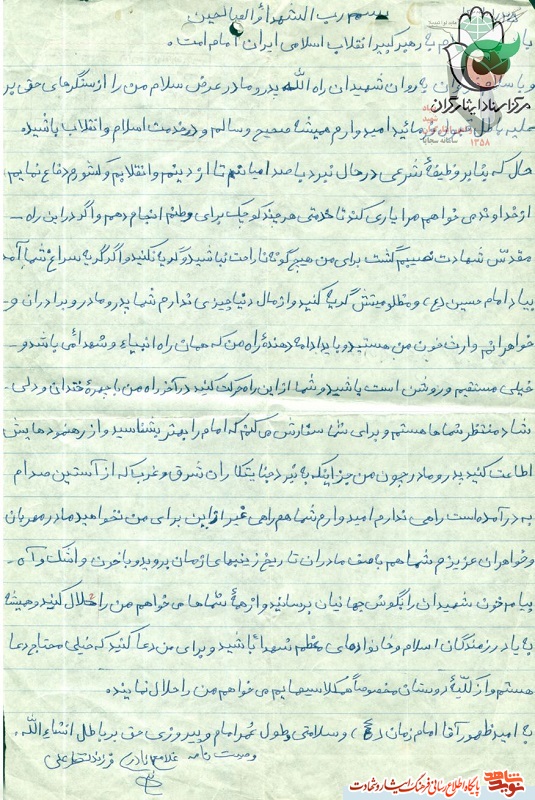 بسم رب الشهداء والصالحین
با سلام به رهبر کبیر انقلاب اسلامی ایران امام امت
مرکز اسناد ایثارگران
و با سلام به روان شهیدان راه الله پدر و مادر عرض سلام من را از سنگرهای حق بر
علیه باطل قبول فرمائید امیدوارم همیشه صحیح و سالم و در خدمت اسلام و انقلاب باشید
۱۳۵۸
حال که بنا بر وظیفهٔ شرعی در حال نبرد با صدامیانم تا از دینم و انقلابم و کشورم دفاع نمایم
از خداوند می خواهم مرا یاری کند تا خدمتی هر چند کوچک برای وطنم انجام دهم و اگر در این راه
مقدّس شهادت نصیبم گشت برای من هیچ گونه ناراحت نباشید و گریه نکنید و اگر گریه سراغ شما آمد
بیاد امام حسین (ع) و مظلومیتش گریه کنید و از مال دنیا چیزی ندارم شما پدر و مادر و برادران و
خواهرانم وارث خون من هستید و باید ادامه دهندهٔ راه من که همان راه انبیاء و شهدا می باشد و
خیلی مستقیم و روشن است باشید و شما از این راه حرکت کنید در آخر راه من با چهرهٔ خندان و دلی
شاد منتظر شماها هستم و برای شما سفارش می کنم که امام را بهتر بشناسید و از رهنمودهایش
اطاعت کنید پدر و مادر چون من جز اینکه به نبرد جنایتکاران شرق و غرب که از آستین صدام
به در آمده است راهی ندارم امیدوارم شما هم راهی غیر از این برای من نخواهید مادر مهربان
و خواهران عزیزم شما هم با صف مادران تاریخ زینبهای زمان بروید و با خون و اشک و آه
پیام خون شهیدان را بگوش جهانیان برسانید و از همهٔ شماها می خواهم من را حلال کنید و همیشه
به یاد رزمندگان اسلام و خانوادهای معظم شهدا باشید و برای من دعا کنید که خیلی محتاج دعا
هستم و از کلّیهٔ دوستان مخصوصاً همکلاسیهایم می خواهم من را حلال نمایند
به امید ظهور آقا امام زمان (عج) و سلامتی و طول عمر امام و پیروزی حق بر باطل انشاءالله
وصیت نامه غلامرضا فرزند
نوید شاهد
پایگاه اطلاع رسانی فرهنگ ایثار و شهادت